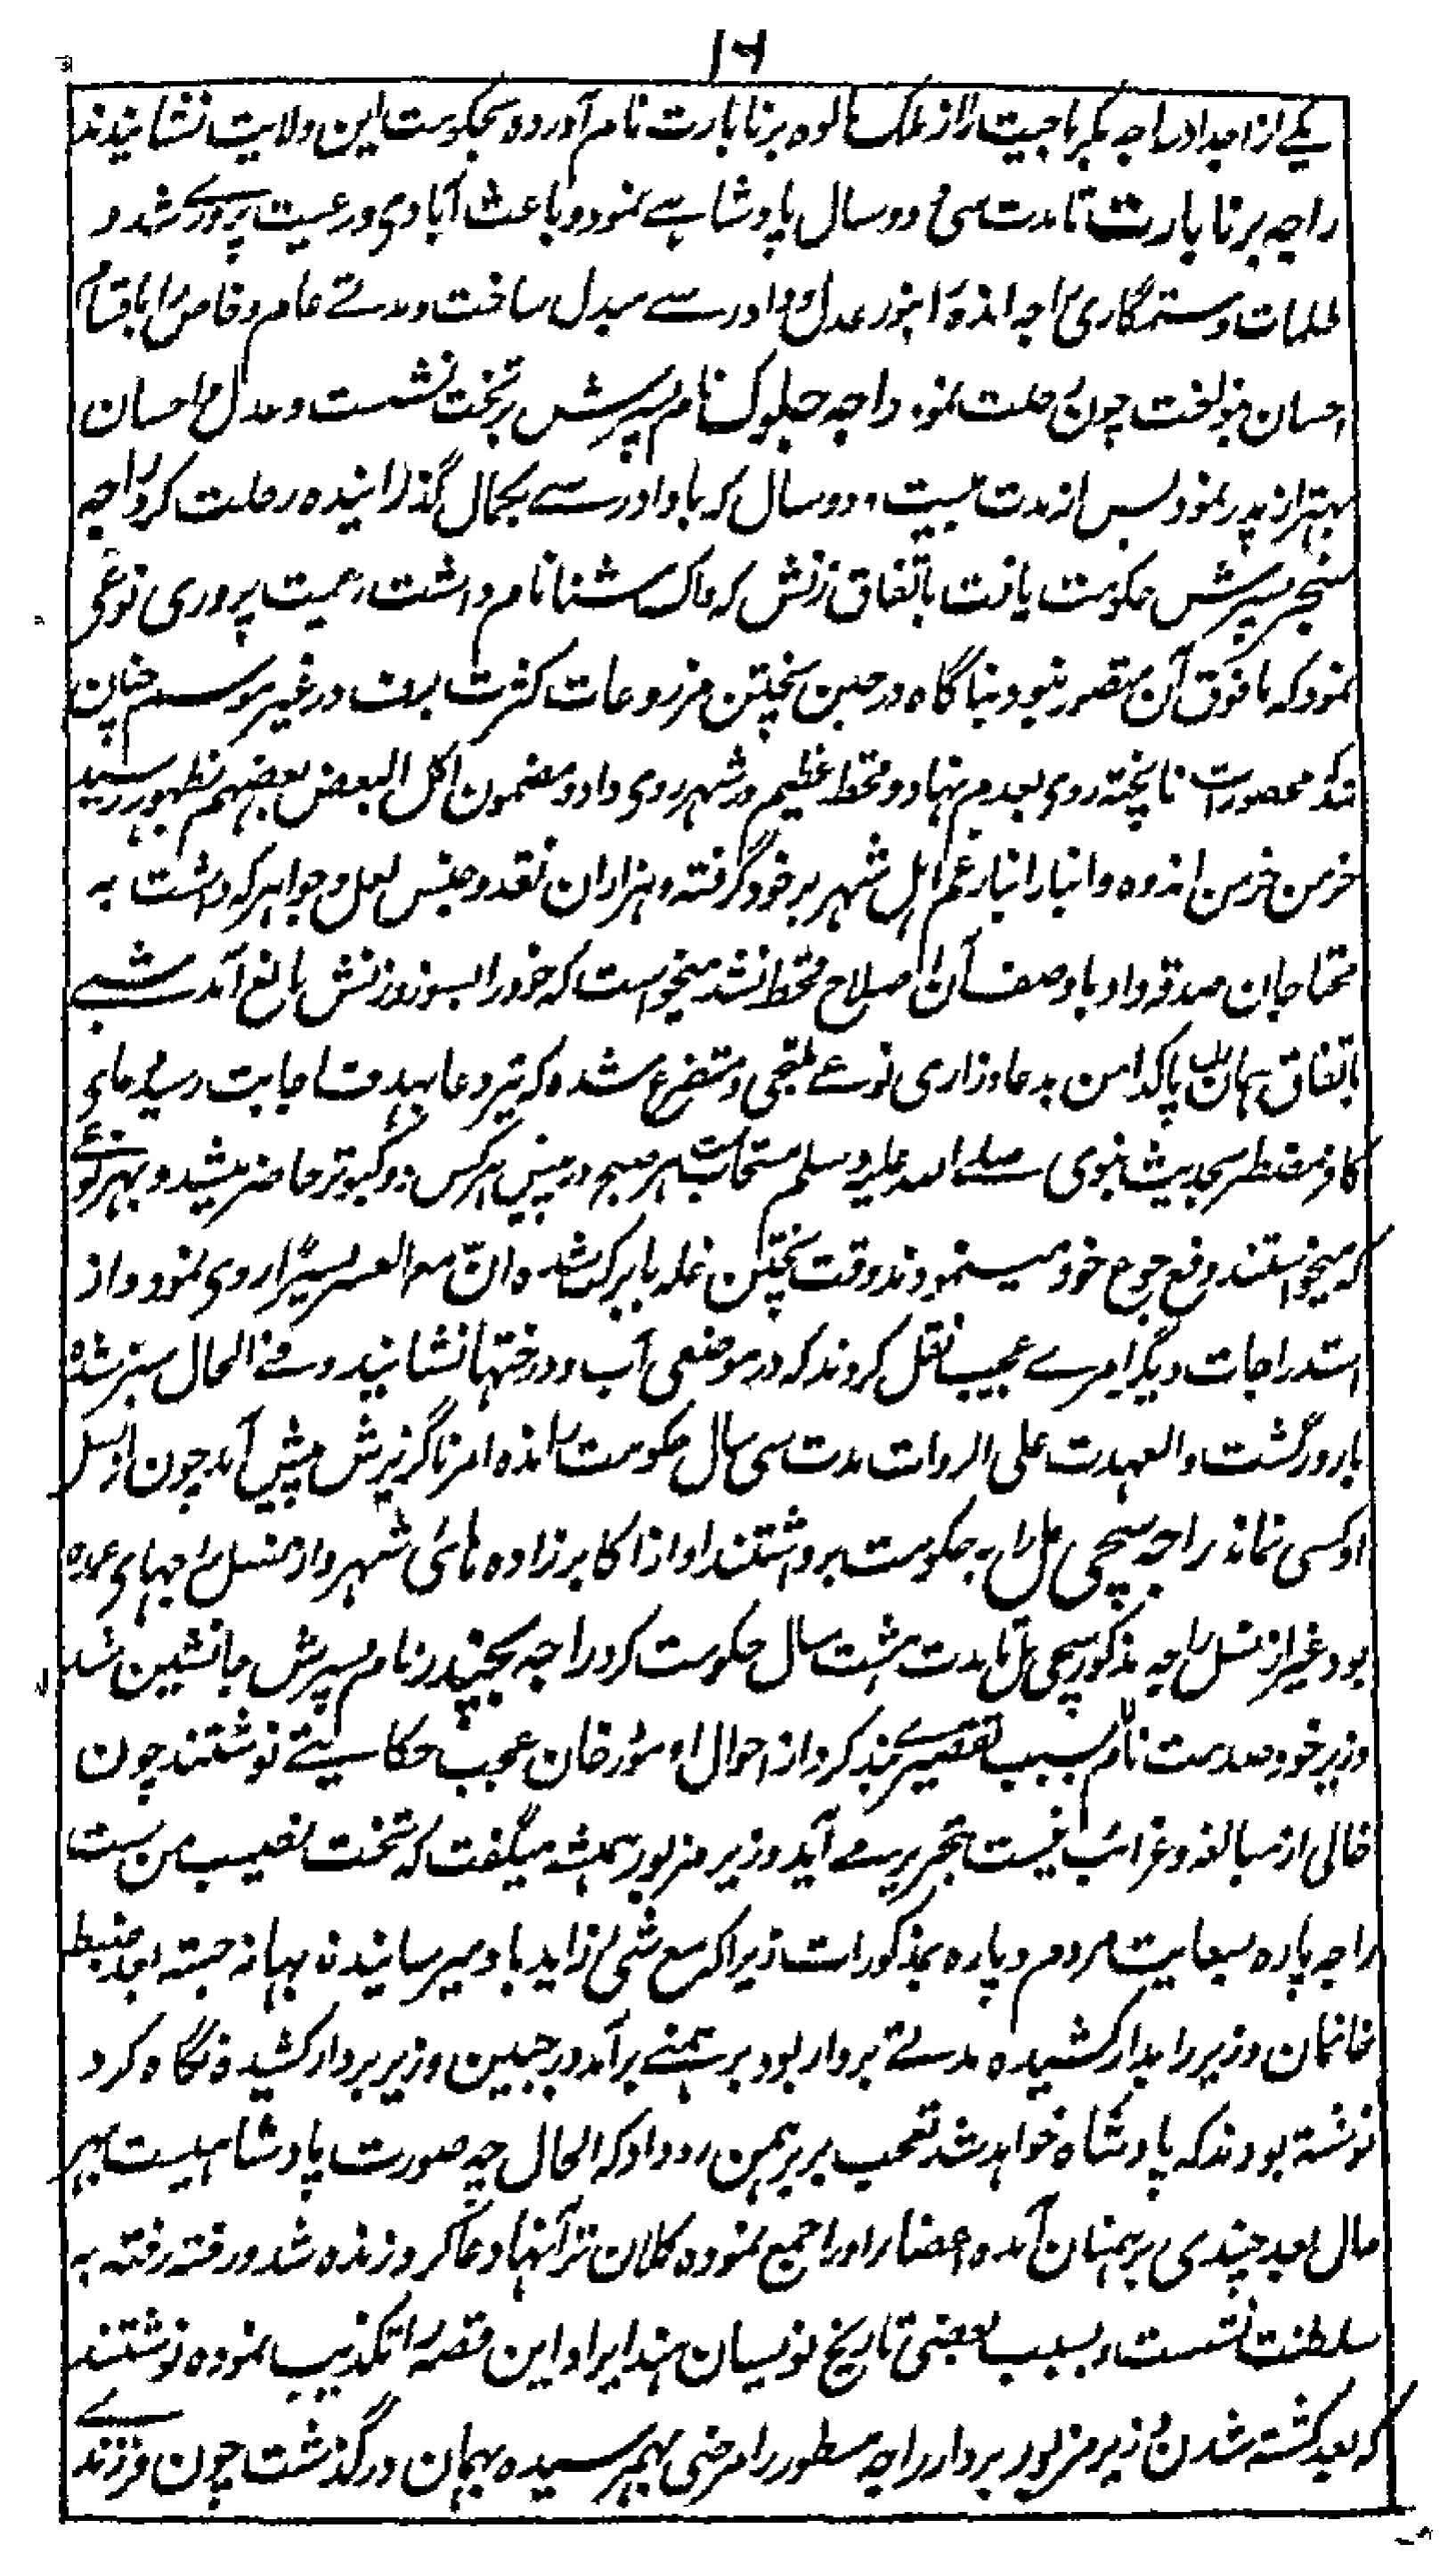 ۱۶
یکے از اجداد راجہ بکرماجیت را از ملک مالوہ برنا بارت نام آوردہ بحکومت این ولایت نشانیدند
راجہ برنا بارت تا مدت سی و دو سال پادشاہے نمود و باعث آبادی و رعیت پروری شد و
ظلمات و ستمگاری راجہ اندہ را بنور عدل و دادرسے مبدل ساخت و مدتے عام و خاص را باقسام
احسان بنواخت چون رحلت نمود راجہ جلوک نام پسرش بر تخت نشست و عدل و احسان
بہتر از پدر نمود پس از مدت بیست و دو سال کہ با دادرسے بکمال گذرانیدہ رحلت کرد راجہ
سنجر پسرش حکومت یافت باتفاق زنش کہ ماک شنا نام داشت رعیت پروری نوعی
نمود کہ مافوق آن متصور نبود بناگاہ در حین پختن مزروعات کثرت برف در غیر موسم چنان
شد کہ محصورات ناپختہ روی بعدم نہاد و قحط عظیم در شہر روی داد و مضمون اکل البعض بعضہم بظہور رسید
خرمن خرمن اندوہ و انبار انبار غم اہل شہر بر خود گرفتہ و ہزاران نقد و جنس لعل و جواہر کہ داشت بہ
محتاجان صدقہ داد باوصف آن اصلاح قحط نشد میخواست کہ خود را بسوزد زنش مانع آمد شبے
باتفاق ہمان پاکدامن بدعا و زاری نوعے ملتجی و متضرع شدہ کہ تیر دعا بہدف اجابت رسید دعای
کافر مضطر بحدیث نبوی صلے اللہ علیہ وسلم مستجابست ہر صبح در پیش ہر کس دو کبوتر حاضر میشد و بہر نوعے
کہ میخواستند دفع جوع خود مینمودند وقت پختن غلہ بابرکت شدہ انّ مع العسر یسرًا روی نمود و از
استدراجات دیگر امرے عجیب نقل کردند کہ در موضعی آب و درختہا نشانید و فے الحال سبز شدہ
بارور گشت والعہدت علی الروات مدت سی سال حکومت راندہ امر ناگزیرش پیش آمد چون از نسل
او کسی نماند راجہ بیجی مل را بہ حکومت برداشتند او از اکابر زادہ ہائی شہر و از نسل راجہای عمدہ
بود غیر از نسل راجہ مذکور بیجی مل تا مدت ہشت سال حکومت کرد راجہ بجیندر نام پسرش جانشین شد
وزیر خود صدمت نام بسبب تقصیرے بند کرد از احوال او مؤرخان عجب حکایتے نوشتند چون
خالی از مبالغہ و غرائب نیست بتحریر مے آید وزیر مزبور ہمیشہ میگفت کہ تخت نصیب من ست
راجہ پارہ بسعایت مردم و پارہ بمذکورات زیرا کہ سع شئ زاید باو میرسانیدند بہانہ جستہ بعد ضبط
خانمان وزیر را بدار کشیدہ مدتے بردار بود برہمنے برآمد در جبین وزیر بردار کشیدہ نگاہ کرد
نوشتہ بودند کہ پادشاہ خواہد شد تعجب بر برہمن رو داد کہ الحال چہ صورت پادشاہیست بہر
حال بعد چندی برہمنان آمدہ اعضاء او را جمع نمودہ کلان تر آنہا دعا کرد زندہ شد و رفتہ رفتہ بہ
سلطنت نشست و بسبب بعضی تاریخ نویسان ہند ایراد این قصہ را تکذیب نمودہ نوشتند
کہ بعد کشتہ شدن وزیر مزبور بردار راجہ مسطور را مرضی بہم رسیدہ بہمان درگذشت چون فرزندے